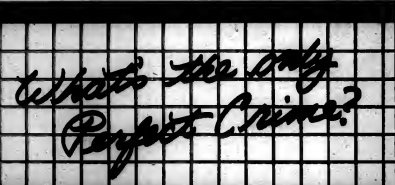 What's the only
Perfect Crime?